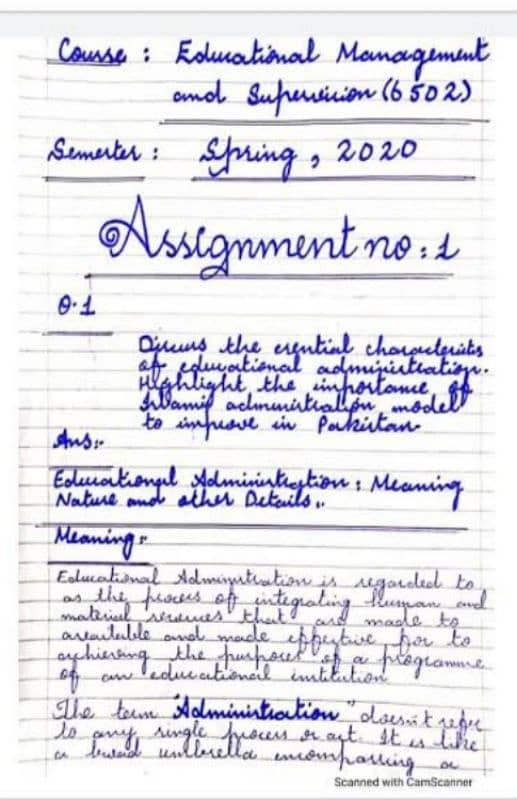 Course : Educational Management
and Supervision (6502)
Semester : Spring, 2020
Assignment no : 1
Q.1
Discuss the essential characteristics
of educational administration.
Highlight the importance of
Islamic administration model
to improve in Pakistan.
Ans:-
Educational Administration : Meaning
Nature and other Details :-
Meaning :-
Educational Administration is regarded to
as the process of integrating human and
material resources that are made to
available and made effective for to
achieving the purposes of a programme
of an educational institution
The term "Administration" doesn't refer
to any single process or act. It is like
a broad umbrella encompassing a
Scanned with CamScanner